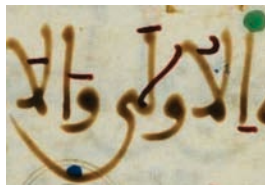 الاولى والا